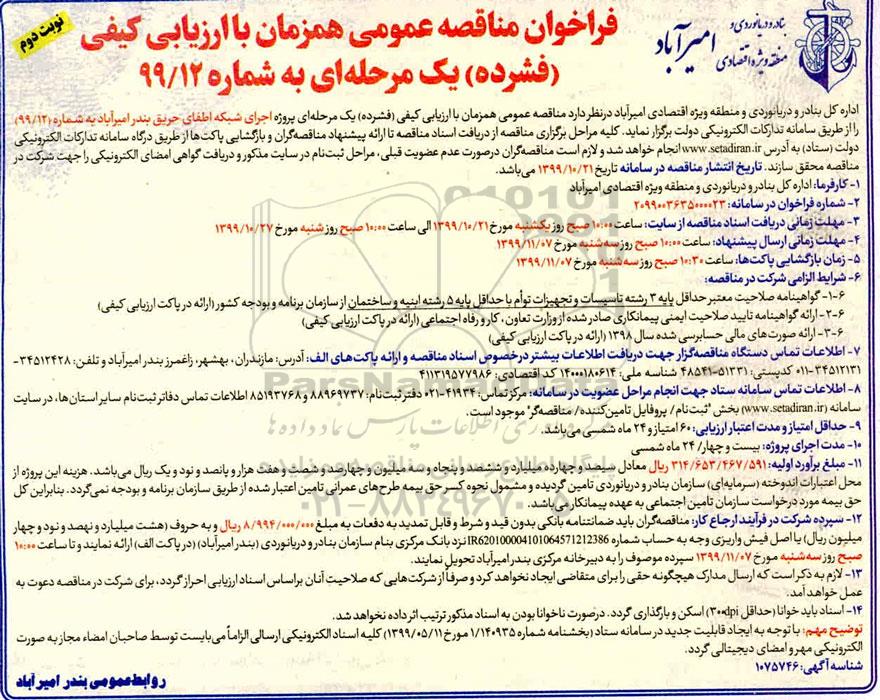 نوبت دوم
بنادر و دریانوردی و
منطقه ویژه اقتصادی
امیرآباد
فراخوان مناقصه عمومی همزمان با ارزیابی کیفی
(فشرده) یک مرحله‌ای به شماره ۹۹/۱۲
اداره کل بنادر و دریانوردی و منطقه ویژه اقتصادی امیرآباد در نظر دارد مناقصه عمومی همزمان با ارزیابی کیفی (فشرده) یک مرحله‌ای پروژه اجرای شبکه اطفای حریق بندر امیرآباد به شماره (۹۹/۱۲)
را از طریق سامانه تدارکات الکترونیکی دولت برگزار نماید. کلیه مراحل برگزاری مناقصه از دریافت اسناد مناقصه تا ارائه پیشنهاد مناقصه‌گران و بازگشایی پاکت‌ها از طریق درگاه سامانه تدارکات الکترونیکی
دولت (ستاد) به آدرس www.setadiran.ir انجام خواهد شد و لازم است مناقصه‌گران درصورت عدم عضویت قبلی، مراحل ثبت‌نام در سایت مذکور و دریافت گواهی امضای الکترونیکی را جهت شرکت در
مناقصه محقق سازند. تاریخ انتشار مناقصه در سامانه تاریخ ۱۳۹۹/۱۰/۲۱ می‌باشد.
۱- کارفرما: اداره کل بنادر و دریانوردی و منطقه ویژه اقتصادی امیرآباد
۲- شماره فراخوان در سامانه: ۲۰۹۹۰۰۳۶۳۵۰۰۰۰۲۳
۳- مهلت زمانی دریافت اسناد مناقصه از سایت: ساعت ۱۰:۰۰ صبح روز یکشنبه مورخ ۱۳۹۹/۱۰/۲۱ الی ساعت ۱۰:۰۰ صبح روز شنبه مورخ ۱۳۹۹/۱۰/۲۷
۴- مهلت زمانی ارسال پیشنهاد: ساعت ۱۰:۰۰ صبح روز سه‌شنبه مورخ ۱۳۹۹/۱۱/۰۷
۵- زمان بازگشایی پاکت‌ها: ساعت ۱۰:۳۰ صبح روز سه‌شنبه مورخ ۱۳۹۹/۱۱/۰۷
۶- شرایط الزامی شرکت در مناقصه:
۶-۱- گواهینامه صلاحیت معتبر حداقل پایه ۳ رشته تاسیسات و تجهیزات توأم با حداقل پایه ۵ رشته ابنیه و ساختمان از سازمان برنامه و بودجه کشور (ارائه در پاکت ارزیابی کیفی)
۶-۲- ارائه گواهینامه تایید صلاحیت ایمنی پیمانکاری صادر شده از وزارت تعاون، کار و رفاه اجتماعی (ارائه در پاکت ارزیابی کیفی)
۶-۳- ارائه صورت‌های مالی حسابرسی شده سال ۱۳۹۸ (ارائه در پاکت ارزیابی کیفی)
۷- اطلاعات تماس دستگاه مناقصه‌گزار جهت دریافت اطلاعات بیشتر درخصوص اسناد مناقصه و ارائه پاکت‌های الف: آدرس: مازندران، بهشهر، زاغمرز بندر امیرآباد و تلفن: ۳۴۵۱۲۴۲۸-
۰۱۱-۳۴۵۱۲۱۳۱ کدپستی: ۵۱۳۳۱-۴۸۵۴۱ شناسه ملی: ۱۴۰۰۰۱۸۰۶۱۴ کد اقتصادی: ۴۱۱۳۱۹۵۷۷۹۸۶
۸- اطلاعات تماس سامانه ستاد جهت انجام مراحل عضویت در سامانه: مرکز تماس: ۴۱۹۳۴-۰۲۱ دفتر ثبت‌نام: ۸۸۹۶۹۷۳۷ و ۸۵۱۹۳۷۶۸ اطلاعات تماس دفاتر ثبت‌نام سایر استان‌ها، در سایت
سامانه (www.setadiran.ir) بخش "ثبت‌نام / پروفایل تامین‌کننده / مناقصه‌گر" موجود است.
۹- حداقل امتیاز و مدت اعتبار ارزیابی: ۶۰ امتیاز و ۲۴ ماه شمسی می‌باشد.
۱۰- مدت اجرای پروژه: بیست و چهار / ۲۴ ماه شمسی
۱۱- مبلغ برآورد اولیه: ۳۱۴/۶۵۳/۴۶۷/۵۹۱ ریال معادل سیصد و چهارده میلیارد و ششصد و پنجاه و سه میلیون و چهارصد و شصت و هفت هزار و پانصد و نود و یک ریال می‌باشد. هزینه این پروژه از
محل اعتبارات اندوخته (سرمایه‌ای) سازمان بنادر و دریانوردی تامین گردیده و مشمول نحوه کسر حق بیمه طرح‌های عمرانی تامین اعتبار شده از طریق سازمان برنامه و بودجه نمی‌گردد. بنابراین کل
حق بیمه مورد درخواست سازمان تامین اجتماعی به عهده پیمانکار می‌باشد.
۱۲- سپرده شرکت در فرآیند ارجاع کار: مناقصه‌گران باید ضمانتنامه بانکی بدون قید و شرط و قابل تمدید به دفعات به مبلغ ۸/۹۹۴/۰۰۰/۰۰۰ ریال و به حروف (هشت میلیارد و نهصد و نود و چهار
میلیون ریال) یا اصل فیش واریزی وجه به حساب شماره IR620100004101064571212386 نزد بانک مرکزی بنام سازمان بنادر و دریانوردی (بندر امیرآباد) (در پاکت الف) ارائه نمایند و تا ساعت ۱۰:۰۰
صبح روز سه‌شنبه مورخ ۱۳۹۹/۱۱/۰۷ سپرده موصوف را به دبیرخانه مرکزی بندر امیرآباد تحویل نمایند.
۱۳- لازم به ذکر است که ارسال مدارک هیچگونه حقی را برای متقاضی ایجاد نخواهد کرد و صرفاً از شرکت‌هایی که صلاحیت آنان براساس اسناد ارزیابی احراز گردد، برای شرکت در مناقصه دعوت به
عمل خواهد آمد.
۱۴- اسناد باید خوانا (حداقل ۳۰۰dpi) اسکن و بارگذاری گردد. درصورت ناخوانا بودن به اسناد مذکور ترتیب اثر داده نخواهد شد.
توضیح مهم: با توجه به ایجاد قابلیت جدید در سامانه ستاد (بخشنامه شماره ۱/۱۴۰۹۳۵ مورخ ۱۳۹۹/۰۵/۱۱) کلیه اسناد الکترونیکی ارسالی الزاماً می‌بایست توسط صاحبان امضاء مجاز به صورت
الکترونیکی مهر و امضای دیجیتالی گردد.
شناسه آگهی: ۱۰۷۵۷۴۶
روابط عمومی بندر امیرآباد
ParsNamadData
۰۲۱-۸۸۳۴۹۶۷۰-۵